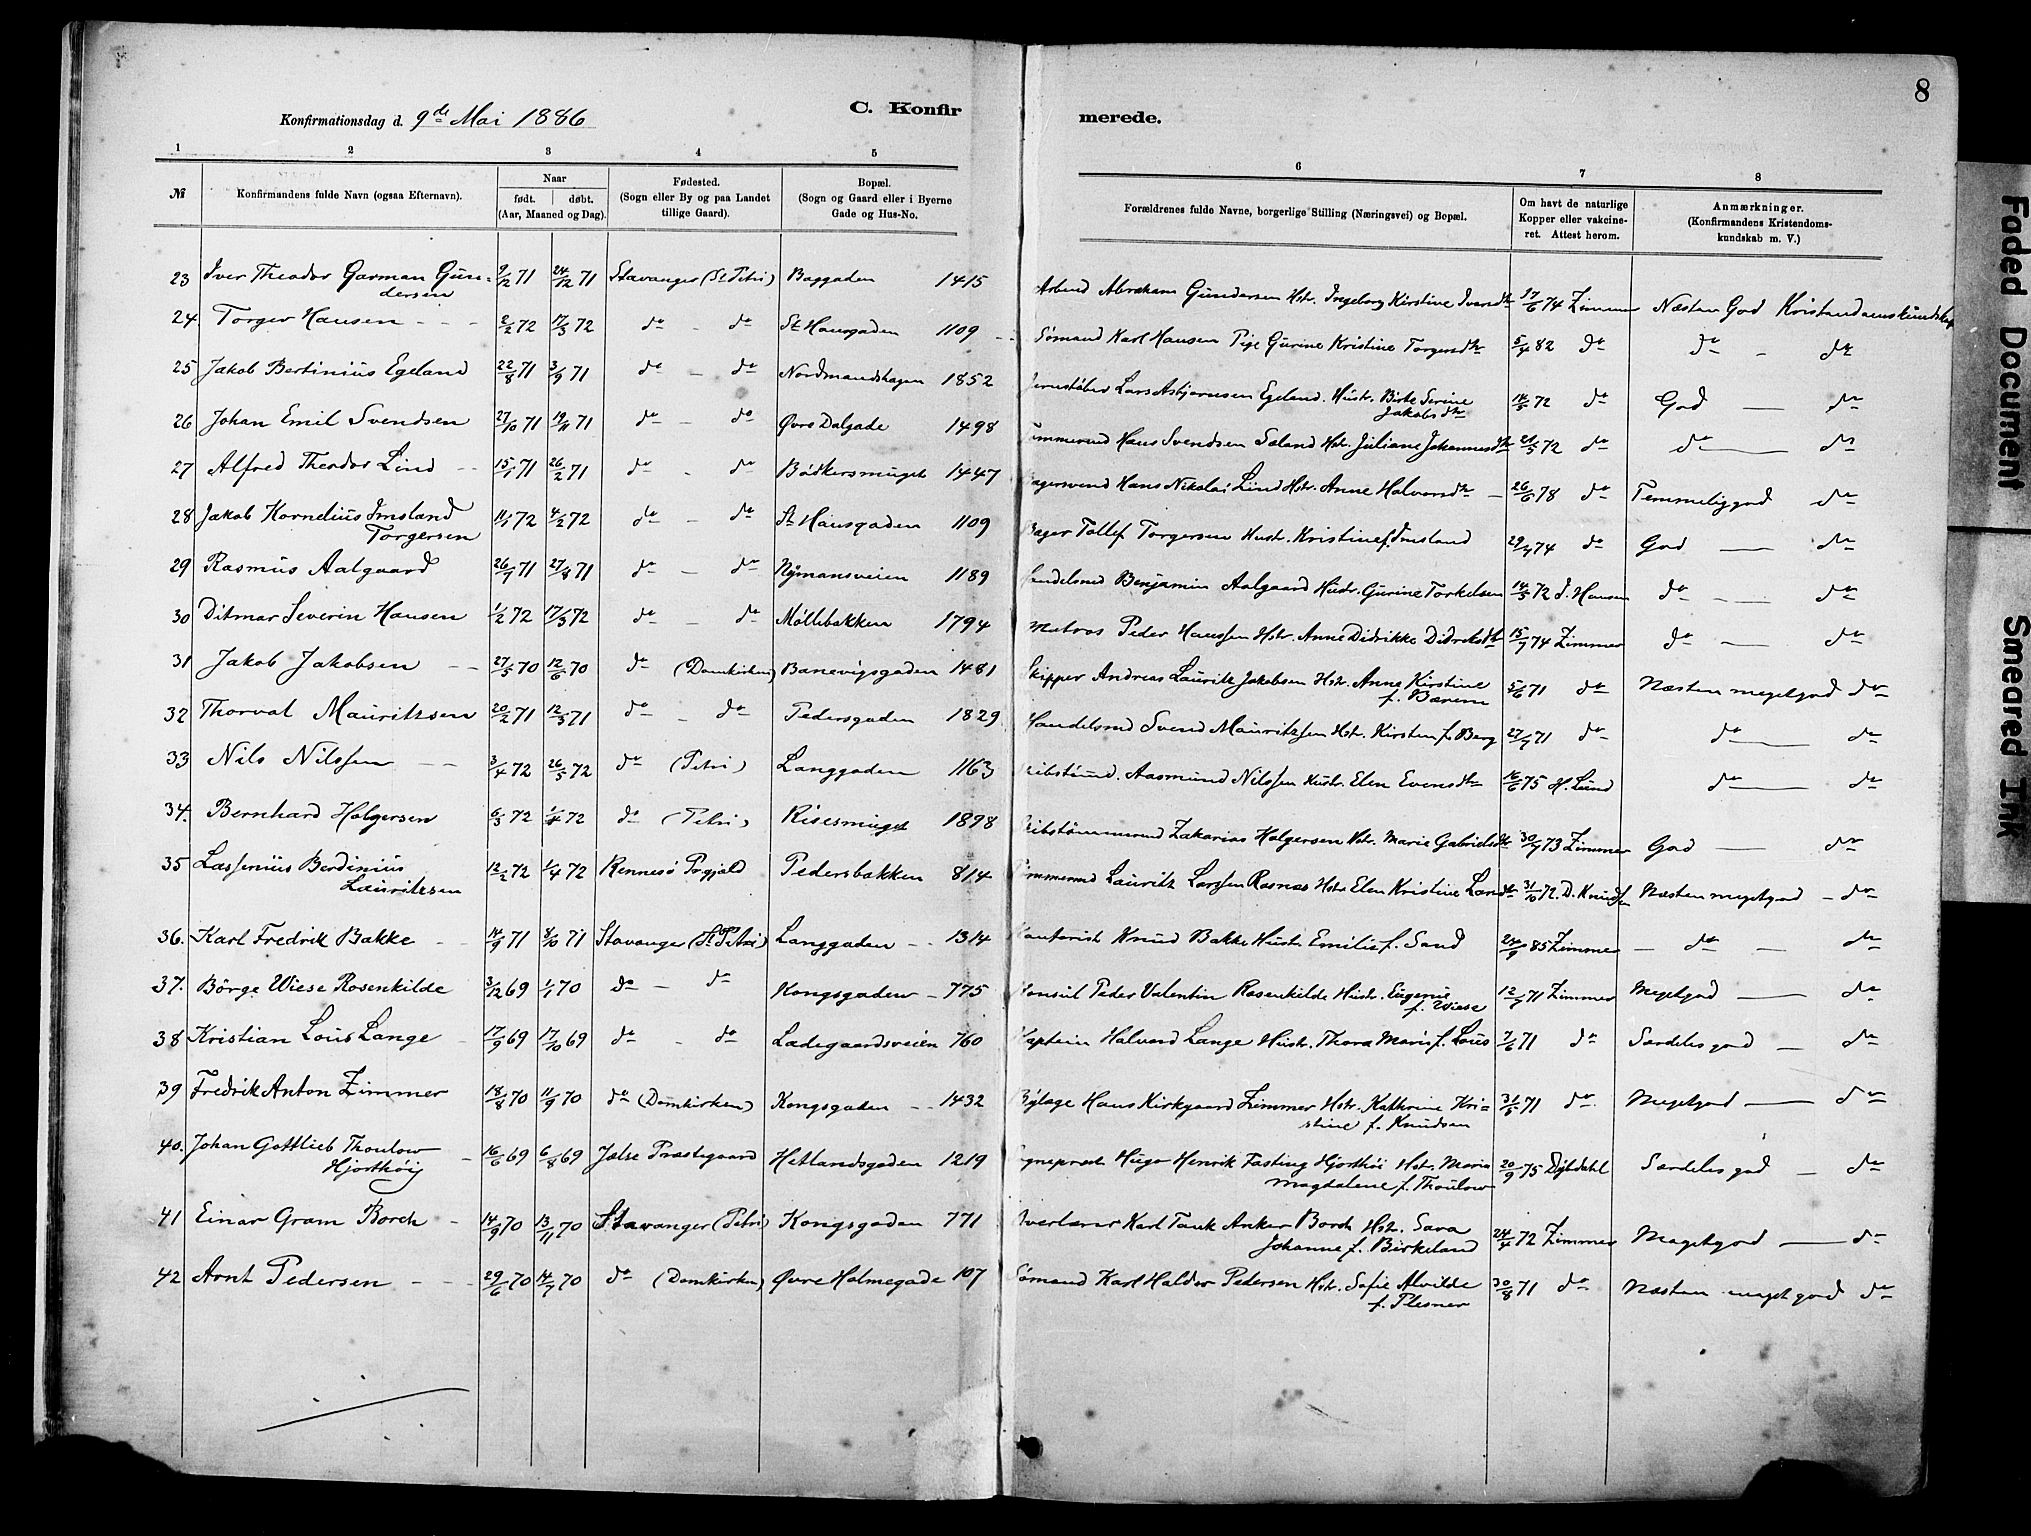 8
Konfirmationsdag d. 9de Mai 1886
C. Konfirmerede.
1 2 3 4 5 6 7 8
№ Konfirmandens fulde Navn (ogsaa Efternavn). Naar født. døbt. (Aar, Maaned og Dag). Fødested. (Sogn eller By og paa Landet tillige Gaard). Bopæl. (Sogn og Gaard eller i Byerne Gade og Hus-No. Forældrenes fulde Navne, borgerlige Stilling (Næringsvei) og Bopæl. Om havt de naturlige Kopper eller vakcineret. Attest herom. Anmærkninger. (Konfirmandens Kristendomskundskab m. V.)
23 Iver Theodor Garman Gundersen 9/12 71 24/12 71 Stavanger (St Petri) Baggaden 1415 Arbmd Abraham Gundersen Hstr. Ingeborg Kirstine Iversdtr 17/6 74 Zimmer Næsten God Kristendomskundskap
24. Torger Hansen 2/2 72 17/3 72 do - do St Hansgaden 1109 Sømand Karl Hansen Pige Gurine Kristine Torgersdtr 5/4 82 do do - do
25 Jakob Bertinius Egeland 22/8 71 3/9 71 do - do Nordmandshagen 1852 Jernstøber Lars Asbjørnsen Egeland. Hustr. Birte Serine Jakobsdtr 14/5 72 do God do
26 Johan Emil Svendsen 27/10 71 19/11 71 do - do Øvre Dalgade 1498 Tømmermd Hans Svendsen Søland Hstr. Juliane Johannesdtr 21/5 72 do do do
27 Alfred Theodor Lind 15/1 71 26/2 71 do - do Bødkersmuget 1447 Bagersvend Hans Nikolai Lind Hstr. Anne Halvorsdtr 26/6 78 do Temmelig god do
28 Jakob Kornelius Imsland Torgersen 11/1 72 4/2 72 do - do St Hansgaden 1109 Bager Tollef Torgersen Hustr. Kristine f. Imsland 29/7 74 do God do
29 Rasmus Aalgaard 26/7 71 27/8 71 do - do Nymansveien 1189 Handelsmd Benjamin Aalgaard Hustr. Gurine Torkelsen 14/5 72 S. Hansen do do
30 Ditmar Severin Hansen 1/2 72 17/3 72 do - do Møllebakken 1794 Matros Peder Hanssen Hstr. Anne Didrikke Didriksdtr 15/7 74 Zimmer do do
31 Jakob Jakobsen 27/5 70 12/6 70 do (Domkirken) Banevigsgaden 1481 Skipper Andreas Lauritz Jakobsen Hstr. Anne Kirstine f. Barem 5/6 71 do Næsten meget god do
32 Thorval Mauritzsen 20/2 71 12/3 71 do - do Pedersgaden 1829 Handelsmd Svend Mauritzsen Hstr. Kirsten f. Berg 27/7 71 do do do
33 Nils Nilssen 3/4 72 26/5 72 do (Petri) Langgaden 1163 Skibstømmd. Aasmund Nilssen Hustr. Elen Evensdtr 16/6 75 H. Lund do do
34. Bernhard Holgersen 6/3 72 1/4 72 do (Petri) Risesmuget 1898 Skibstømmermd Zakarias Holgersen Hstr. Marie Gabrielsdtr 30/7 73 Zimmer God do
35 Lassenius Berdinius Lauritzsen 12/2 72 1/4 72 Rennesø Prgjæld Pedersbakken 814 Tømmermd Lauritz Larssen Rasnas Hstr Elen Kristine Larsdtr 31/10 72. D. Knudsen Næsten meget god do
36. Karl Fredrik Bakke 14/9 71 8/10 71 Stavanger (St Petri) Langgaden 1314 Kontorist Knud Bakke Hustr Emilie f. Sand 24/9 85 Zimmer do do
37. Børge Wiese Rosenkilde 3/12 69 1/1 70 do - do Kongsgaden 775 Konsul Peder Valentin Rosenkilde Hustr. Eugenie f. Wiese 12/7 71 Zimmer Meget god do
38 Kristian Lous Lange 17/9 69 17/10 69 do - do Ladegaardsveien 760 Kaptein Halvard Lange Hustr. Thora Marie f. Lous 7/6 71 do Særdeles god do
39 Fredrik Anton Zimmer 18/8 70 11/9 70 do (Domkirken) Kongsgaden 1432 Bylæge Hans Kirkgaard Zimmer Hstr. Kathrine Kristine f. Knudsen 31/5 71 do Meget god do
40. Johan Gottlieb Thoulow Hjorthøij 16/6 69 6/8 69 Jælse Præstegaard Hetlandsgaden 1219 Sogneprest Hugo Henrik Fasting Hjorthöi Hst. Maria Magdalene f. Thoulow 20/9 75 Dybdahl Særdeles god do
41 Einar Gram Borch 14/9 70 13/11 70 Stavanger (Petri) Kongsgaden 771 Overlærer Karl Tank Anker Borch Hstr. Sara Johanne f. Birkeland 24/4 72 Zimmer Meget god do
42 Arnt Pedersen 29/6 70 14/7 70 do (Domkirken) Øvre Holmegade 107 Sømand Karl Haldor Pedersen Hstr. Sofie Alvilde f. Plesner 30/8 71 do Næsten meget god do
Faded Document
Smeared Ink